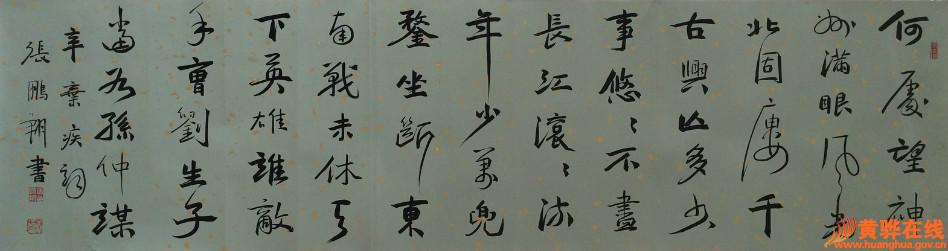 何處望神
州滿眼風光
北固樓千
古興亡多少
事悠々不盡
長江滾々流
年少萬兜
鍪坐斷東
南戰未休天
下英雄誰敵
手曹劉生子
當如孫仲謀
辛棄疾詞
張鵬翔書
黄骅在线
www.huanghua.gov.cn